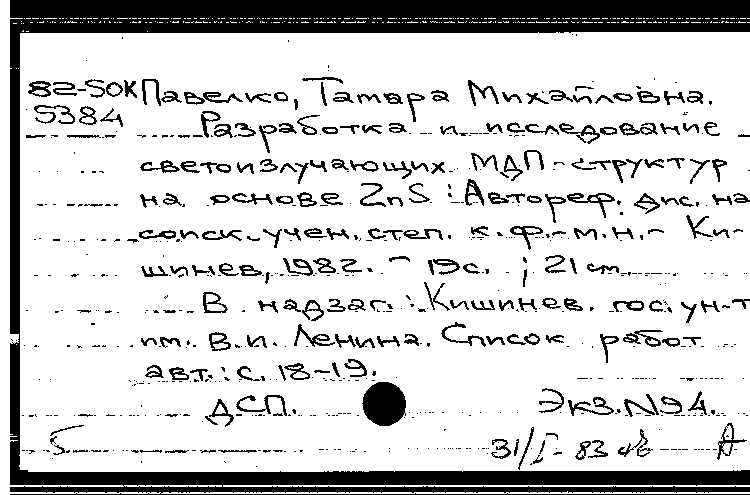 82-5ОК Павелко, Тамара Михайловна.
5384 Разработка и исследование
светоизлучающих МДП-структур
на основе ZnS : Автореф. дис. на
соиск. учен. степ. к.ф.-м.н. - Ки-
шинев, 1982. - 19с. ; 21 см
В надзаг.: Кишинев. гос. ун-т
им. В.И. Ленина. Список работ
авт.: с. 18-19.
ДСП. Экз. N94.
5 31/I-83 А